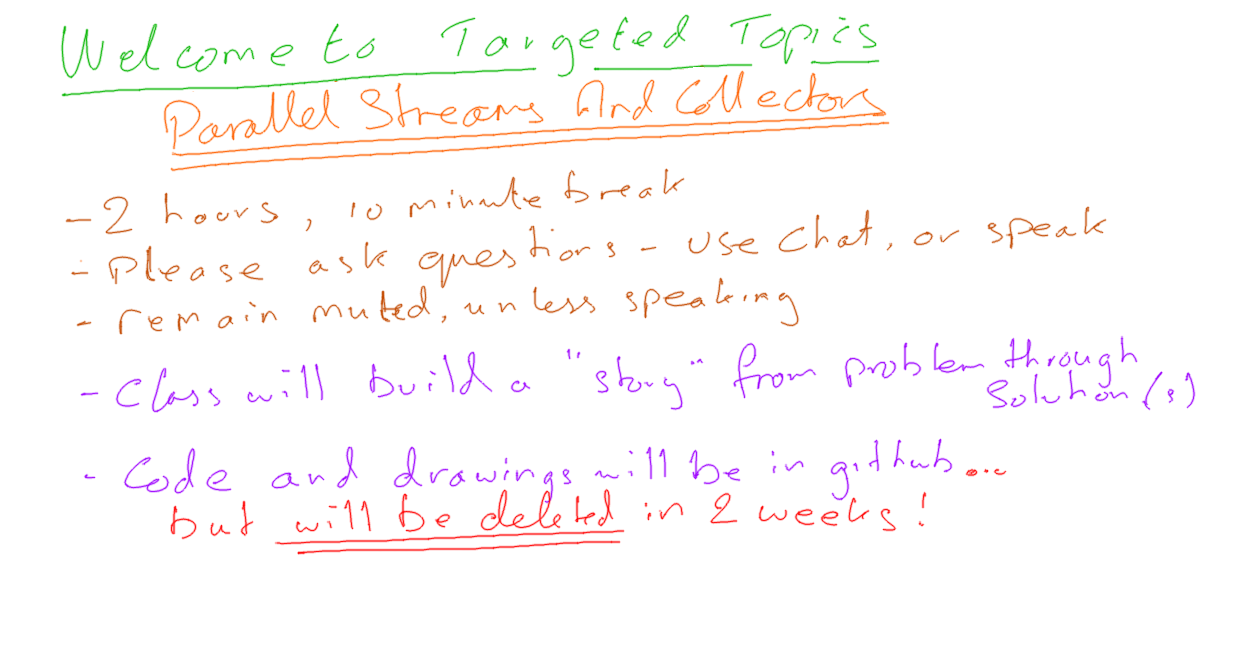 Welcome to Targeted Topics
Parallel Streams And Collectors
- 2 hours, 10 minute break
- Please ask questions - use chat, or speak
- remain muted, unless speaking
- Class will build a "story" from problem through
solution(s)
- Code and drawings will be in github...
but will be deleted in 2 weeks!